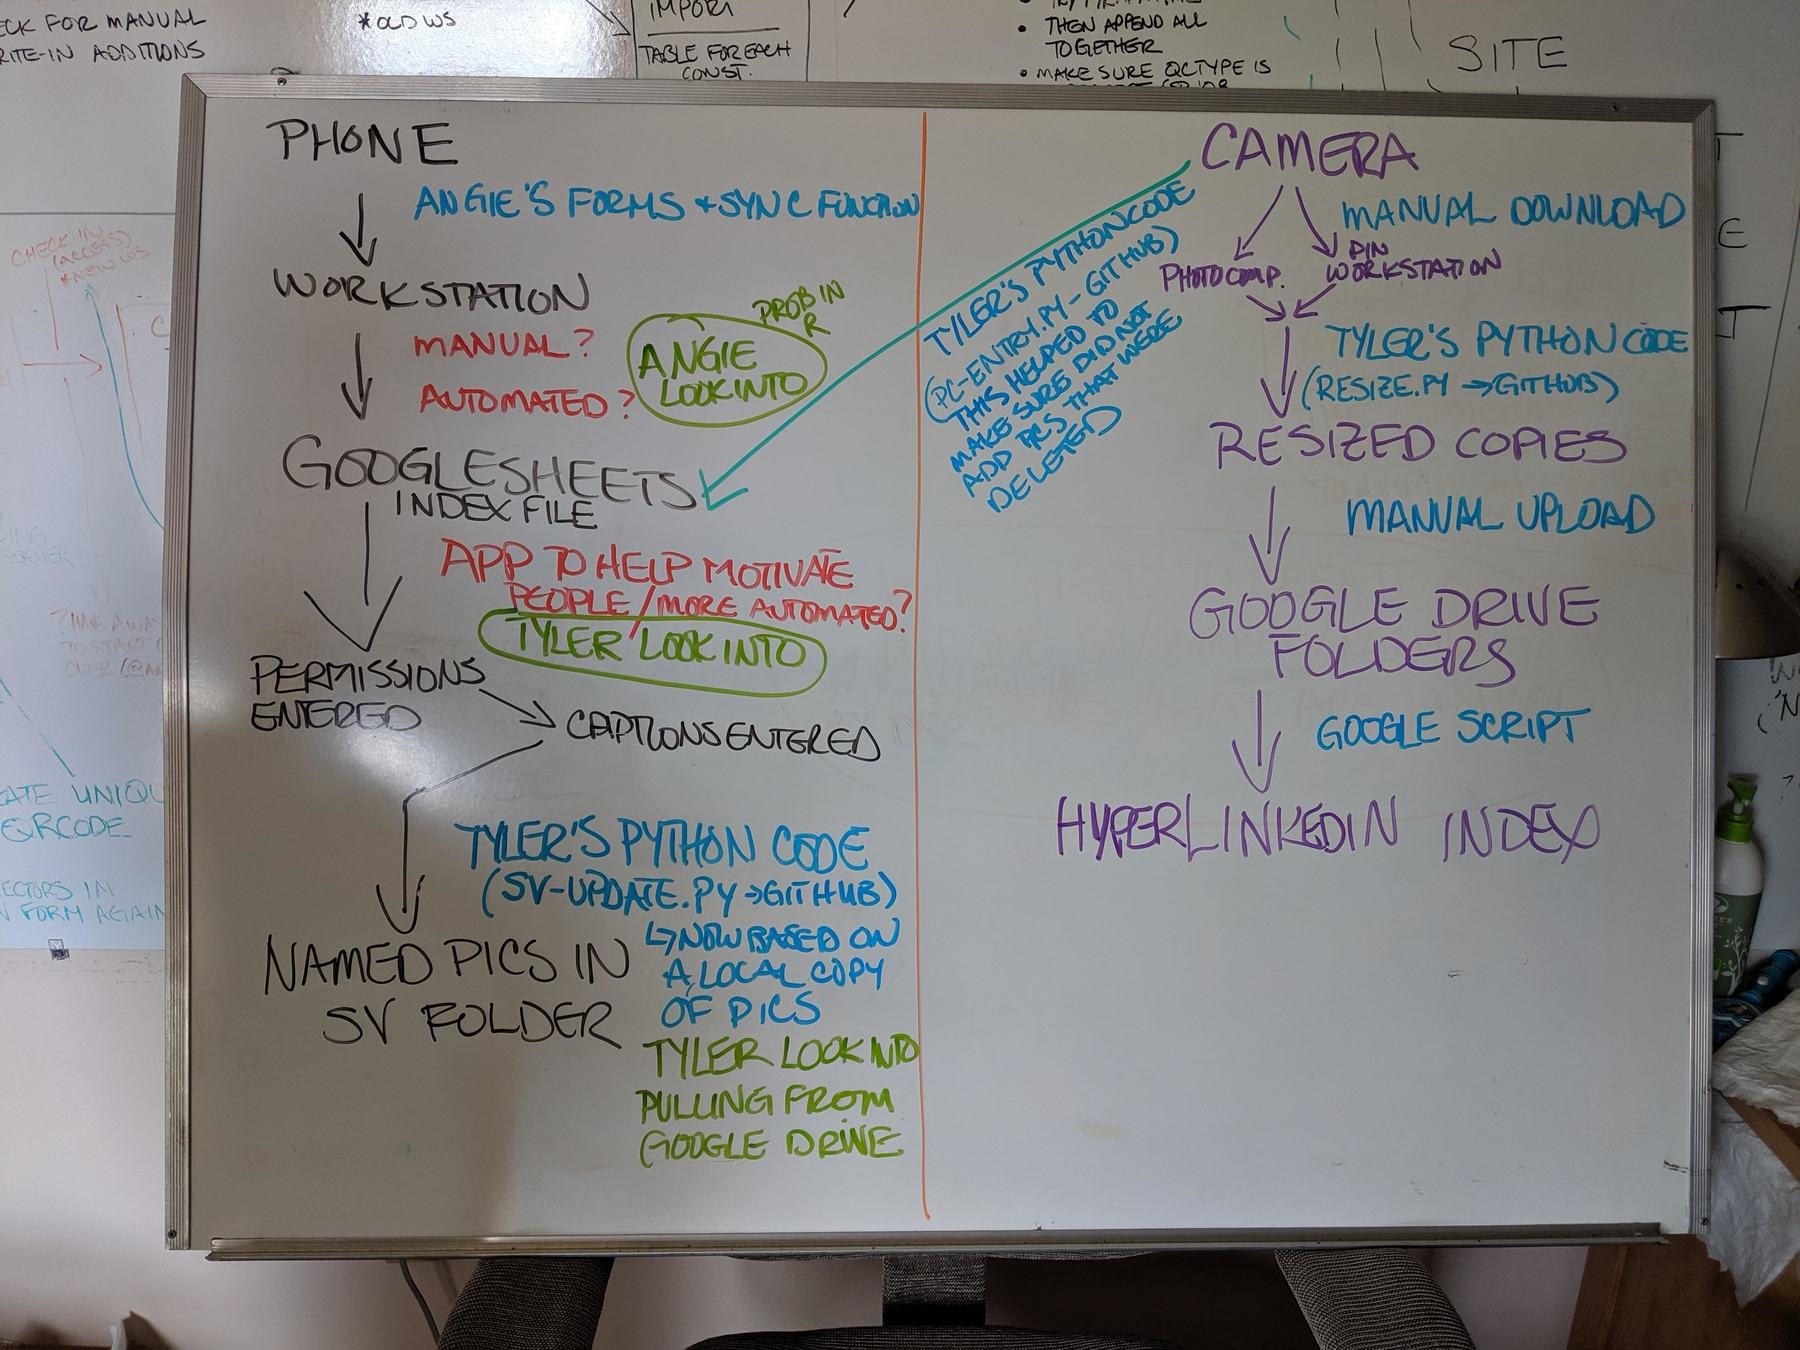 ECK FOR MANUAL
RITE-IN ADDITIONS
*OLD WS
IMPORT
TABLE FOR EACH
CONST.
• THEN APPEND ALL
TOGETHER
• MAKE SURE QCTYPE IS
SITE
PHONE
ANGIE'S FORMS + SYNC FUNCTION
WORKSTATION
MANUAL?
AUTOMATED?
PROB IN
R
ANGIE
LOOK INTO
GOOGLESHEETS
INDEX FILE
APP TO HELP MOTIVATE
PEOPLE/MORE AUTOMATED?
TYLER LOOK INTO
PERMISSIONS
ENTERED
CAPTIONS ENTERED
TYLER'S PYTHON CODE
(SV-UPDATE.PY → GITHUB)
↳ NOW BASED ON
A LOCAL COPY
OF PICS
NAMED PICS IN
SV FOLDER
TYLER LOOK INTO
PULLING FROM
GOOGLE DRIVE
TYLER'S PYTHON CODE
(PC-ENTRY.PY - GITHUB)
THIS HELPED TO
MAKE SURE DID NOT
ADD PICS THAT WERE
DELETED
CAMERA
MANUAL DOWNLOAD
PHOTOCOMP.
PIN
WORKSTATION
TYLER'S PYTHON CODE
(RESIZE.PY → GITHUB)
RESIZED COPIES
MANUAL UPLOAD
GOOGLE DRIVE
FOLDERS
GOOGLE SCRIPT
HYPERLINKED IN INDEX
CHECK-IN
(ACCESS)
*NEW WS
SERVER
TO START
ATE UNIQU
QRCODE
ECTORS IN
FORM AGAIN